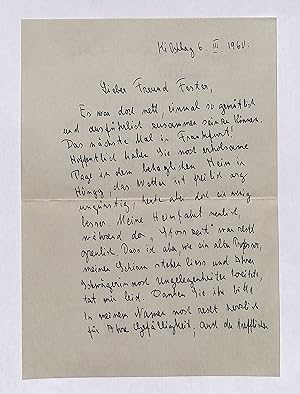 Kilchberg 6. III 1960.
Lieber Freund Foster,
Es war doch nett, einmal so gemütlich
und ausführlich zusammen sein zu können.
Das nächste Mal in Frankfurt!
Hoffentlich haben Sie noch erholsame
Tage in dem behaglichen Heim in
Höngg, das Wetter ist freilich arg
ungünstig, heute aber doch ein wenig
besser. Meine Heimfahrt neulich,
während der „Stosszeit" war recht
greulich. Dass ich aber, wie ein alter Professor,
meinen Schirm stehen liess und Ihrer
Schwägerin noch Ungelegenheiten bereitete,
tat mir leid. Danken Sie ihr bitte
in meinem Namen noch recht herzlich
für Ihre Gefälligkeit, auch der trefflichen